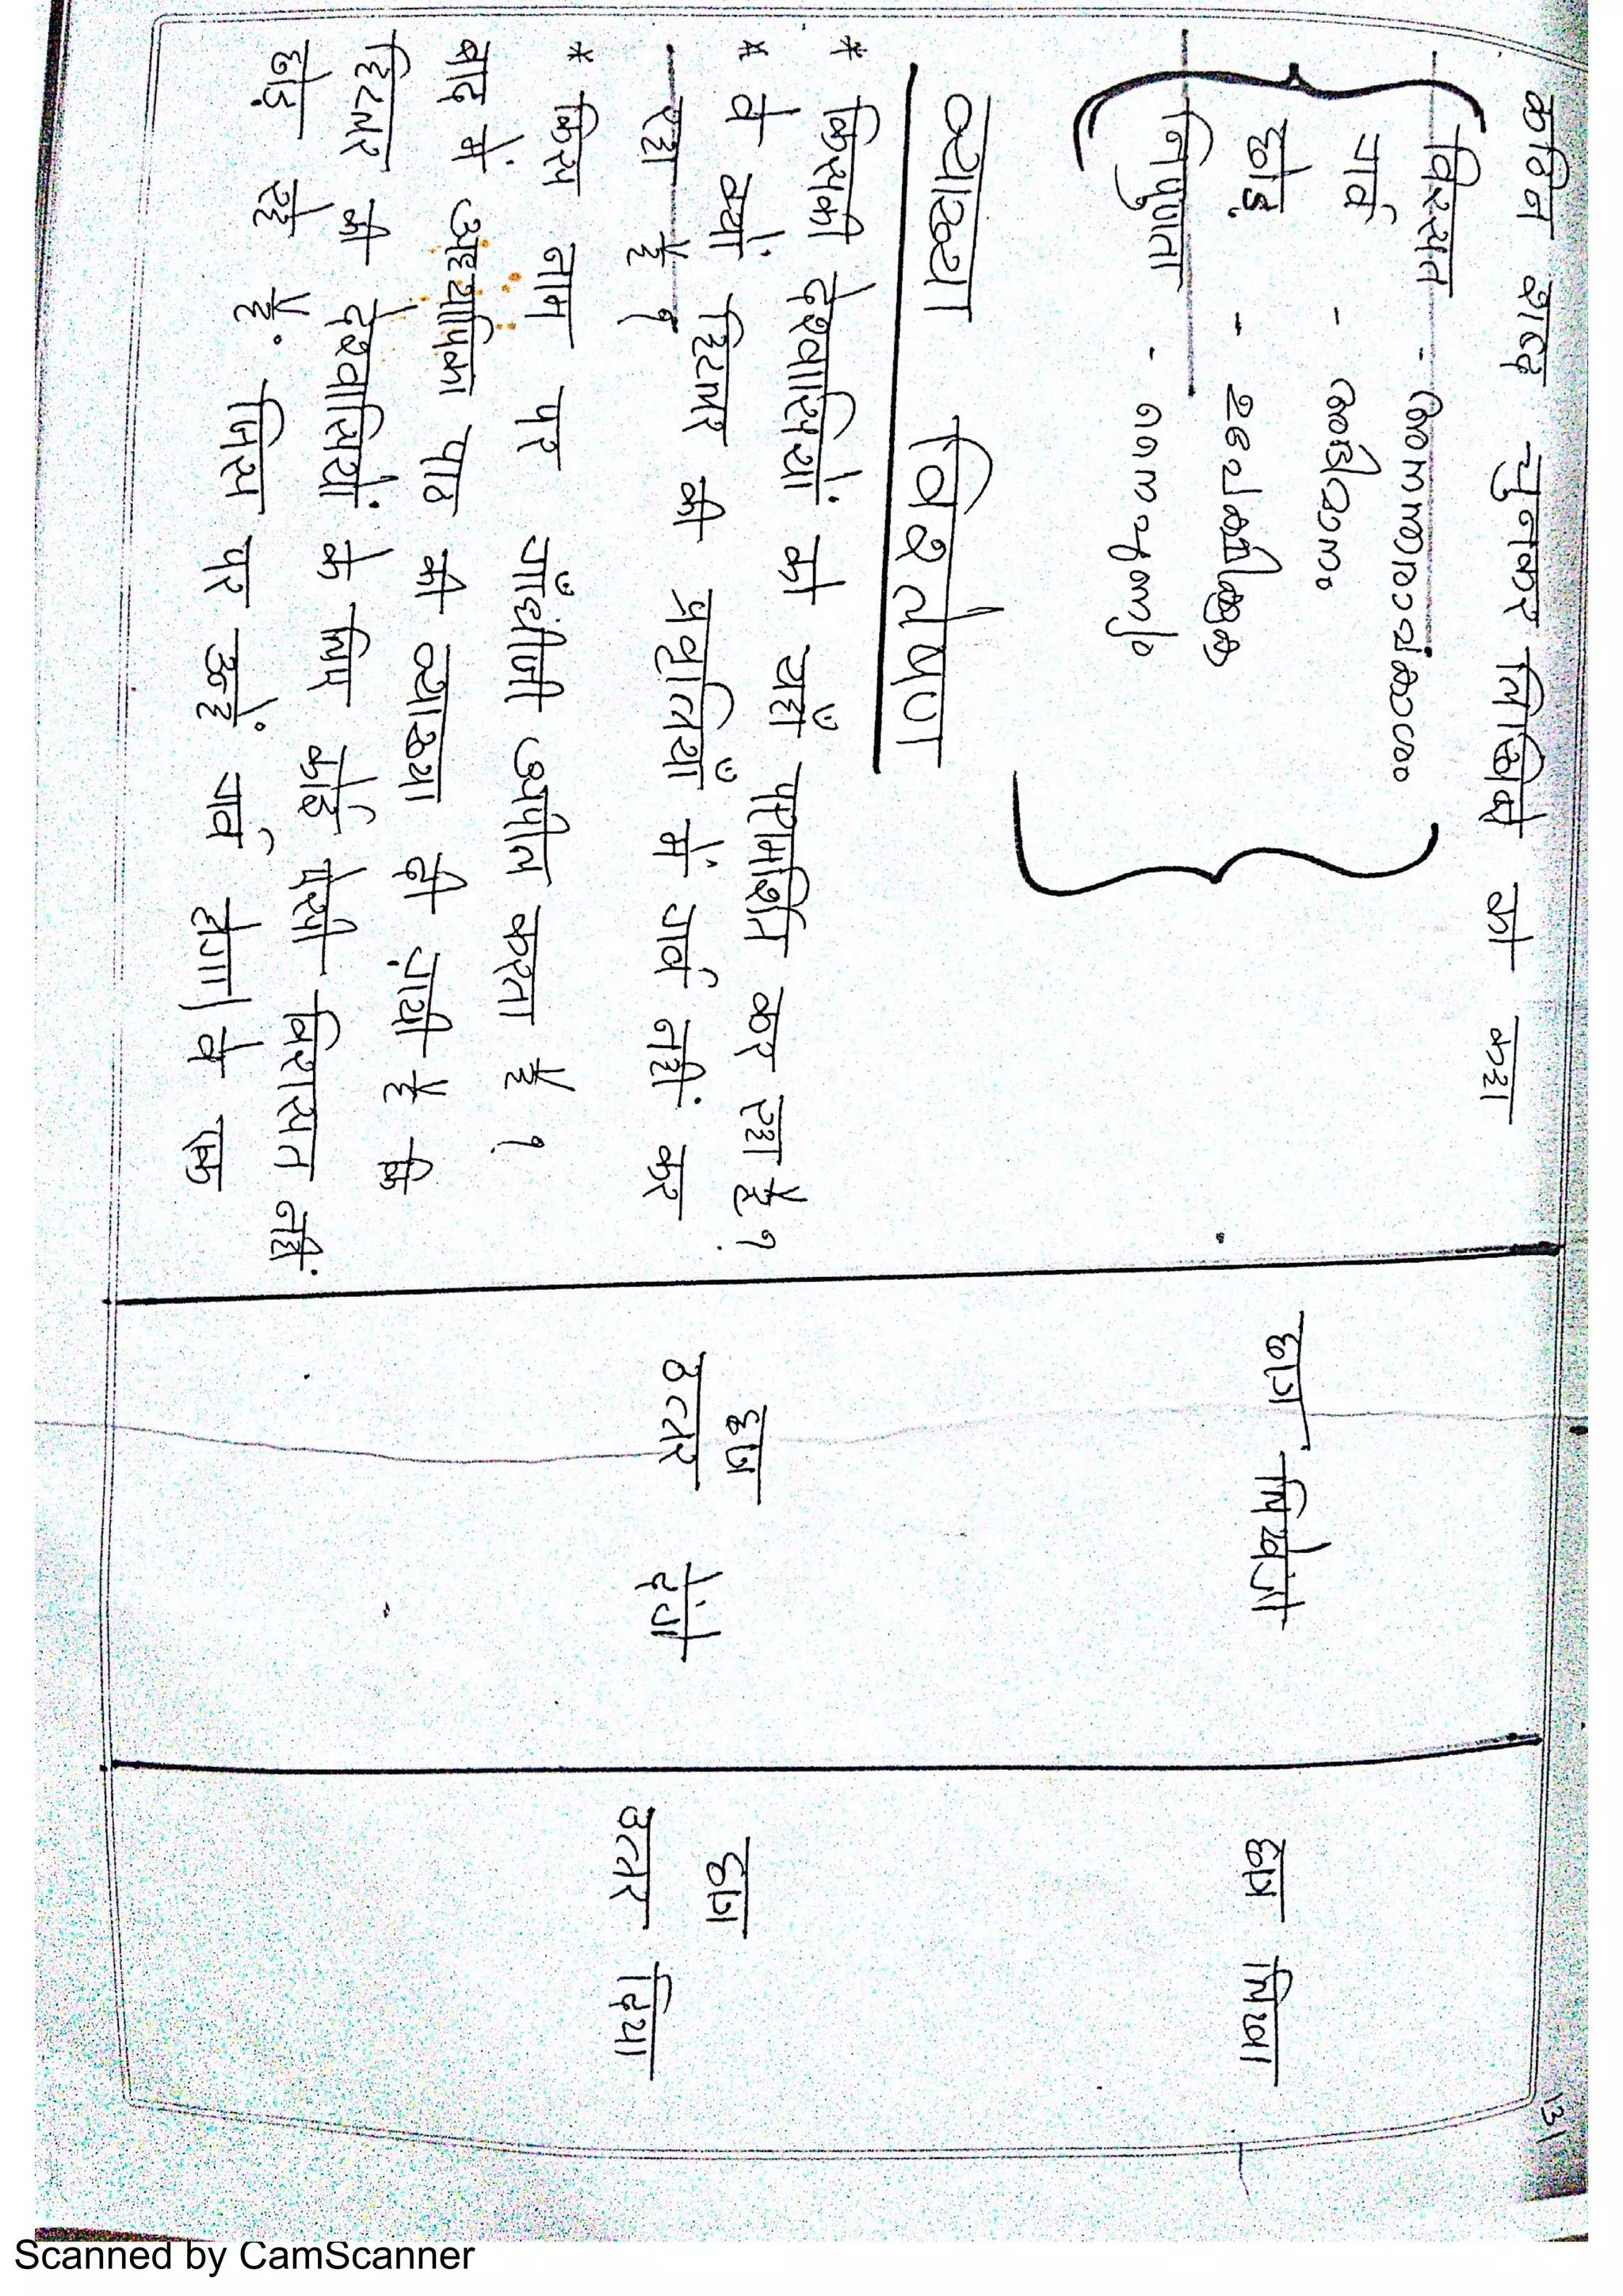 131
कठिन शब्द चुनकर लिखिए को कहा
विरसत - അനന്തരാവകാശം
गर्व - അഭിമാനം
छोड़ - ഉപേക്ഷിക്കുക
निपुणता - നൈപുണ്യം
व्याख्या विश्लेषण
* किसकी देशवासियों को यहाँ परामर्शित कर रहा है?
* वे क्यों हिटलर की प्रवृत्तियाँ में गर्व नहीं कर
रहा है?
* किस नाम पर गाँधीजी अपील करता है?
बाद में अध्यापिका पाठ की व्याख्या दी गयी है कि
हिटलर की देशवासियों के लिए कोई ऐसी विरासत नहीं
छोड़ रहे हैं. जिस पर उन्हें गर्व होगा। वे एक
छात्र लिखेंगे
छात्र
उत्तर देंगे
छात्र लिखा
छात्र
उत्तर दिया
Scanned by CamScanner